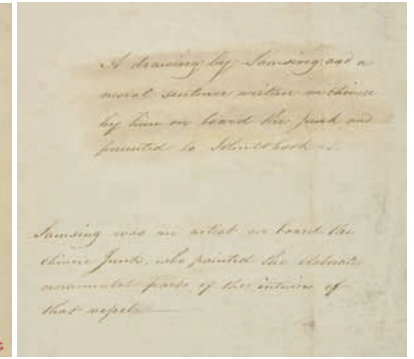 A drawing by Samsing and a
moral sentence written in chinese
by him on board the Junk and
presented to John
Samsing was an artist on board the
chinese Junk, who painted the elaborate
ornamental parts of the interior of
that vessel